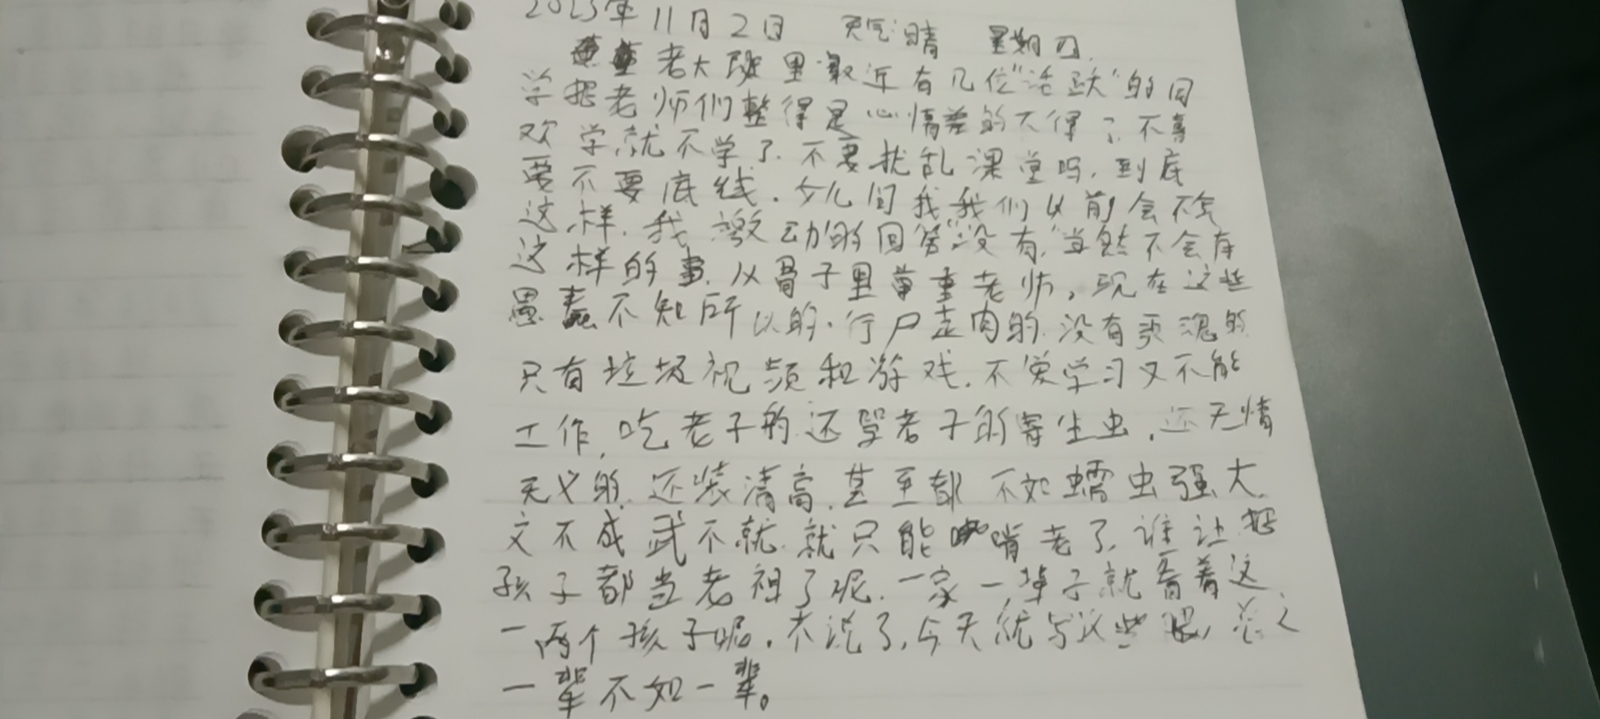 2023年11月2日 天气晴 星期四
老大班里最近有几位“活跃”的同
学把老师们整得是心情差的不得了.不喜
欢学就不学了.不要扰乱课堂吗,到底
要不要底线.女儿问我我们以前会不会
这样.我激动的回答“没有.”当然不会有
这样的事.从骨子里尊重老师,现在这些
愚蠢不知所以的.行尸走肉的.没有灵魂的
只有垃圾视频和游戏.不爱学习又不能
工作,吃老子的还骂老子的寄生虫.还无情
无义的.还装清高.甚至都不如蠕虫强大.
文不成武不就.就只能啃老了.谁让把
孩子都当老祖了呢.一家一辈子就看着这
一两个孩子呢.不说了,今天就写这些 总之
一辈不如一辈。